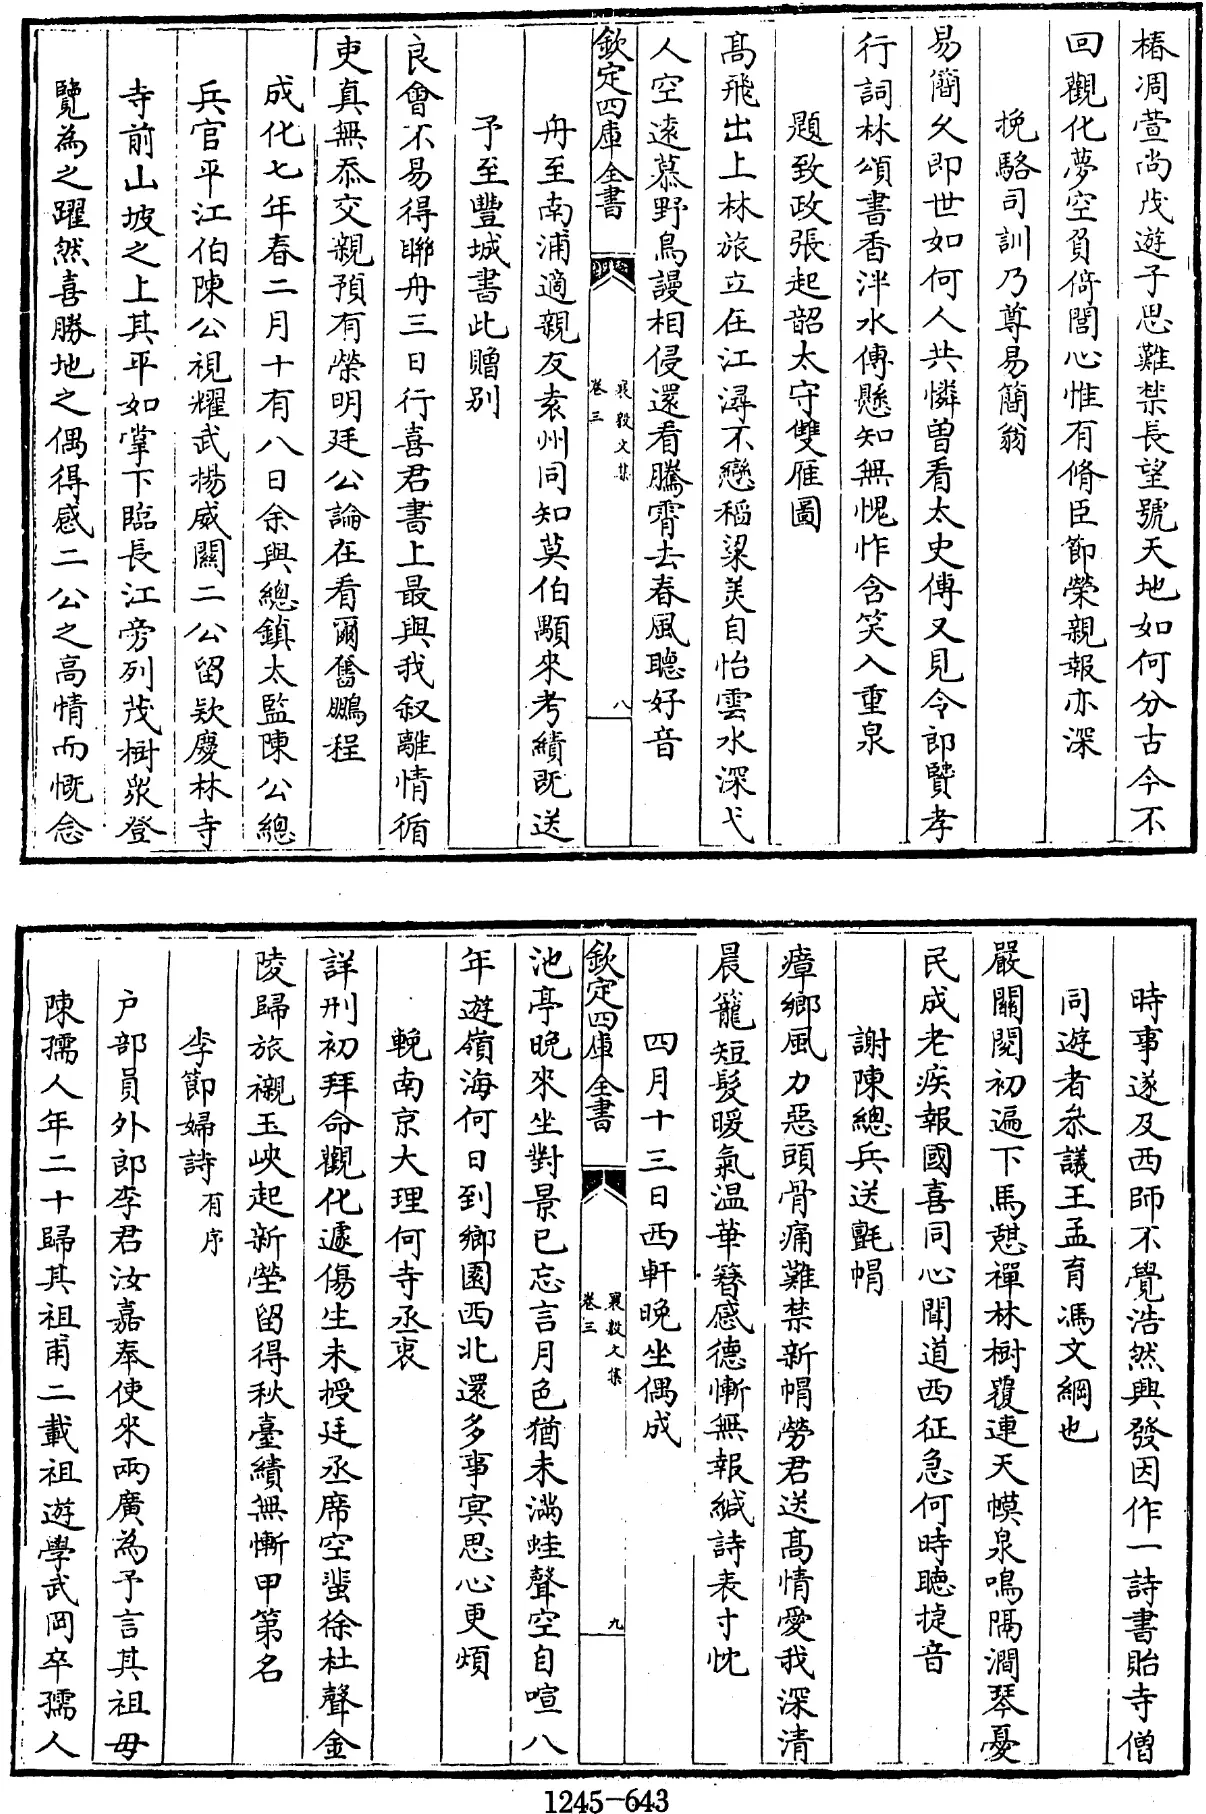 椿凋萱尚茂遊子思難禁長望號天地如何分古今不
回觀化夢空負倚閭心惟有脩臣節榮親報亦深
挽駱司訓乃尊易簡翁
易簡久即世如何人共憐曾看太史傳又見令郎賢孝
行詞林頌書香泮水傳懸知無愧怍含笑入重泉
題致政張起韶太守雙雁圖
高飛出上林旅立在江潯不戀稻粱羙自怡雲水深弋
人空遠慕野鳥謾相侵還看騰霄去春風聽好音
欽定四庫全書
襄毅文集
卷三
八
舟至南浦適親友袁州同知莫伯顒來考績既送
予至豐城書此贈别
良會不易得聯舟三日行喜君書上最與我叙離情循
吏真無忝交親預有榮明廷公論在看爾奮鵬程
成化七年春二月十有八日余與總鎮太監陳公總
兵官平江伯陳公視耀武揚威關二公留欵慶林寺寺
寺前山坡之上其平如掌下臨長江旁列茂樹衆登
覽為之躍然喜勝地之偶得感二公之高情而慨念
時事遂及西師不覺浩然興發因作一詩書貽寺僧
同遊者叅議王孟育馮文綱也
嚴關閱初遍下馬憇禪林樹覆連天幙泉鳴隔澗琴憂
民成老疾報國喜同心聞道西征急何時聽捷音
謝陳總兵送氈帽
瘴鄉風力惡頭骨痛難禁新帽勞君送高情愛我深清
晨籠短髮暖氣温華簪感德慚無報緘詩表寸忱
四月十三日西軒晚坐偶成
欽定四庫全書
襄毅文集
卷三
九
池亭晚來坐對景已忘言月色猶未滿蛙聲空自喧八
年遊嶺海何日到鄉園西北還多事㝠思心更煩
輓南京大理何寺丞衷
詳刑初拜命觀化遽傷生未授廷丞席空蜚徐杜聲金
陵歸旅櫬玉峽起新塋留得秋臺績無慚甲第名
李節婦詩有序
户部員外郎李君汝嘉奉使來兩廣為予言其祖母
陳孺人年二十歸其祖甫二載祖遊學武岡卒孺人
1245-643